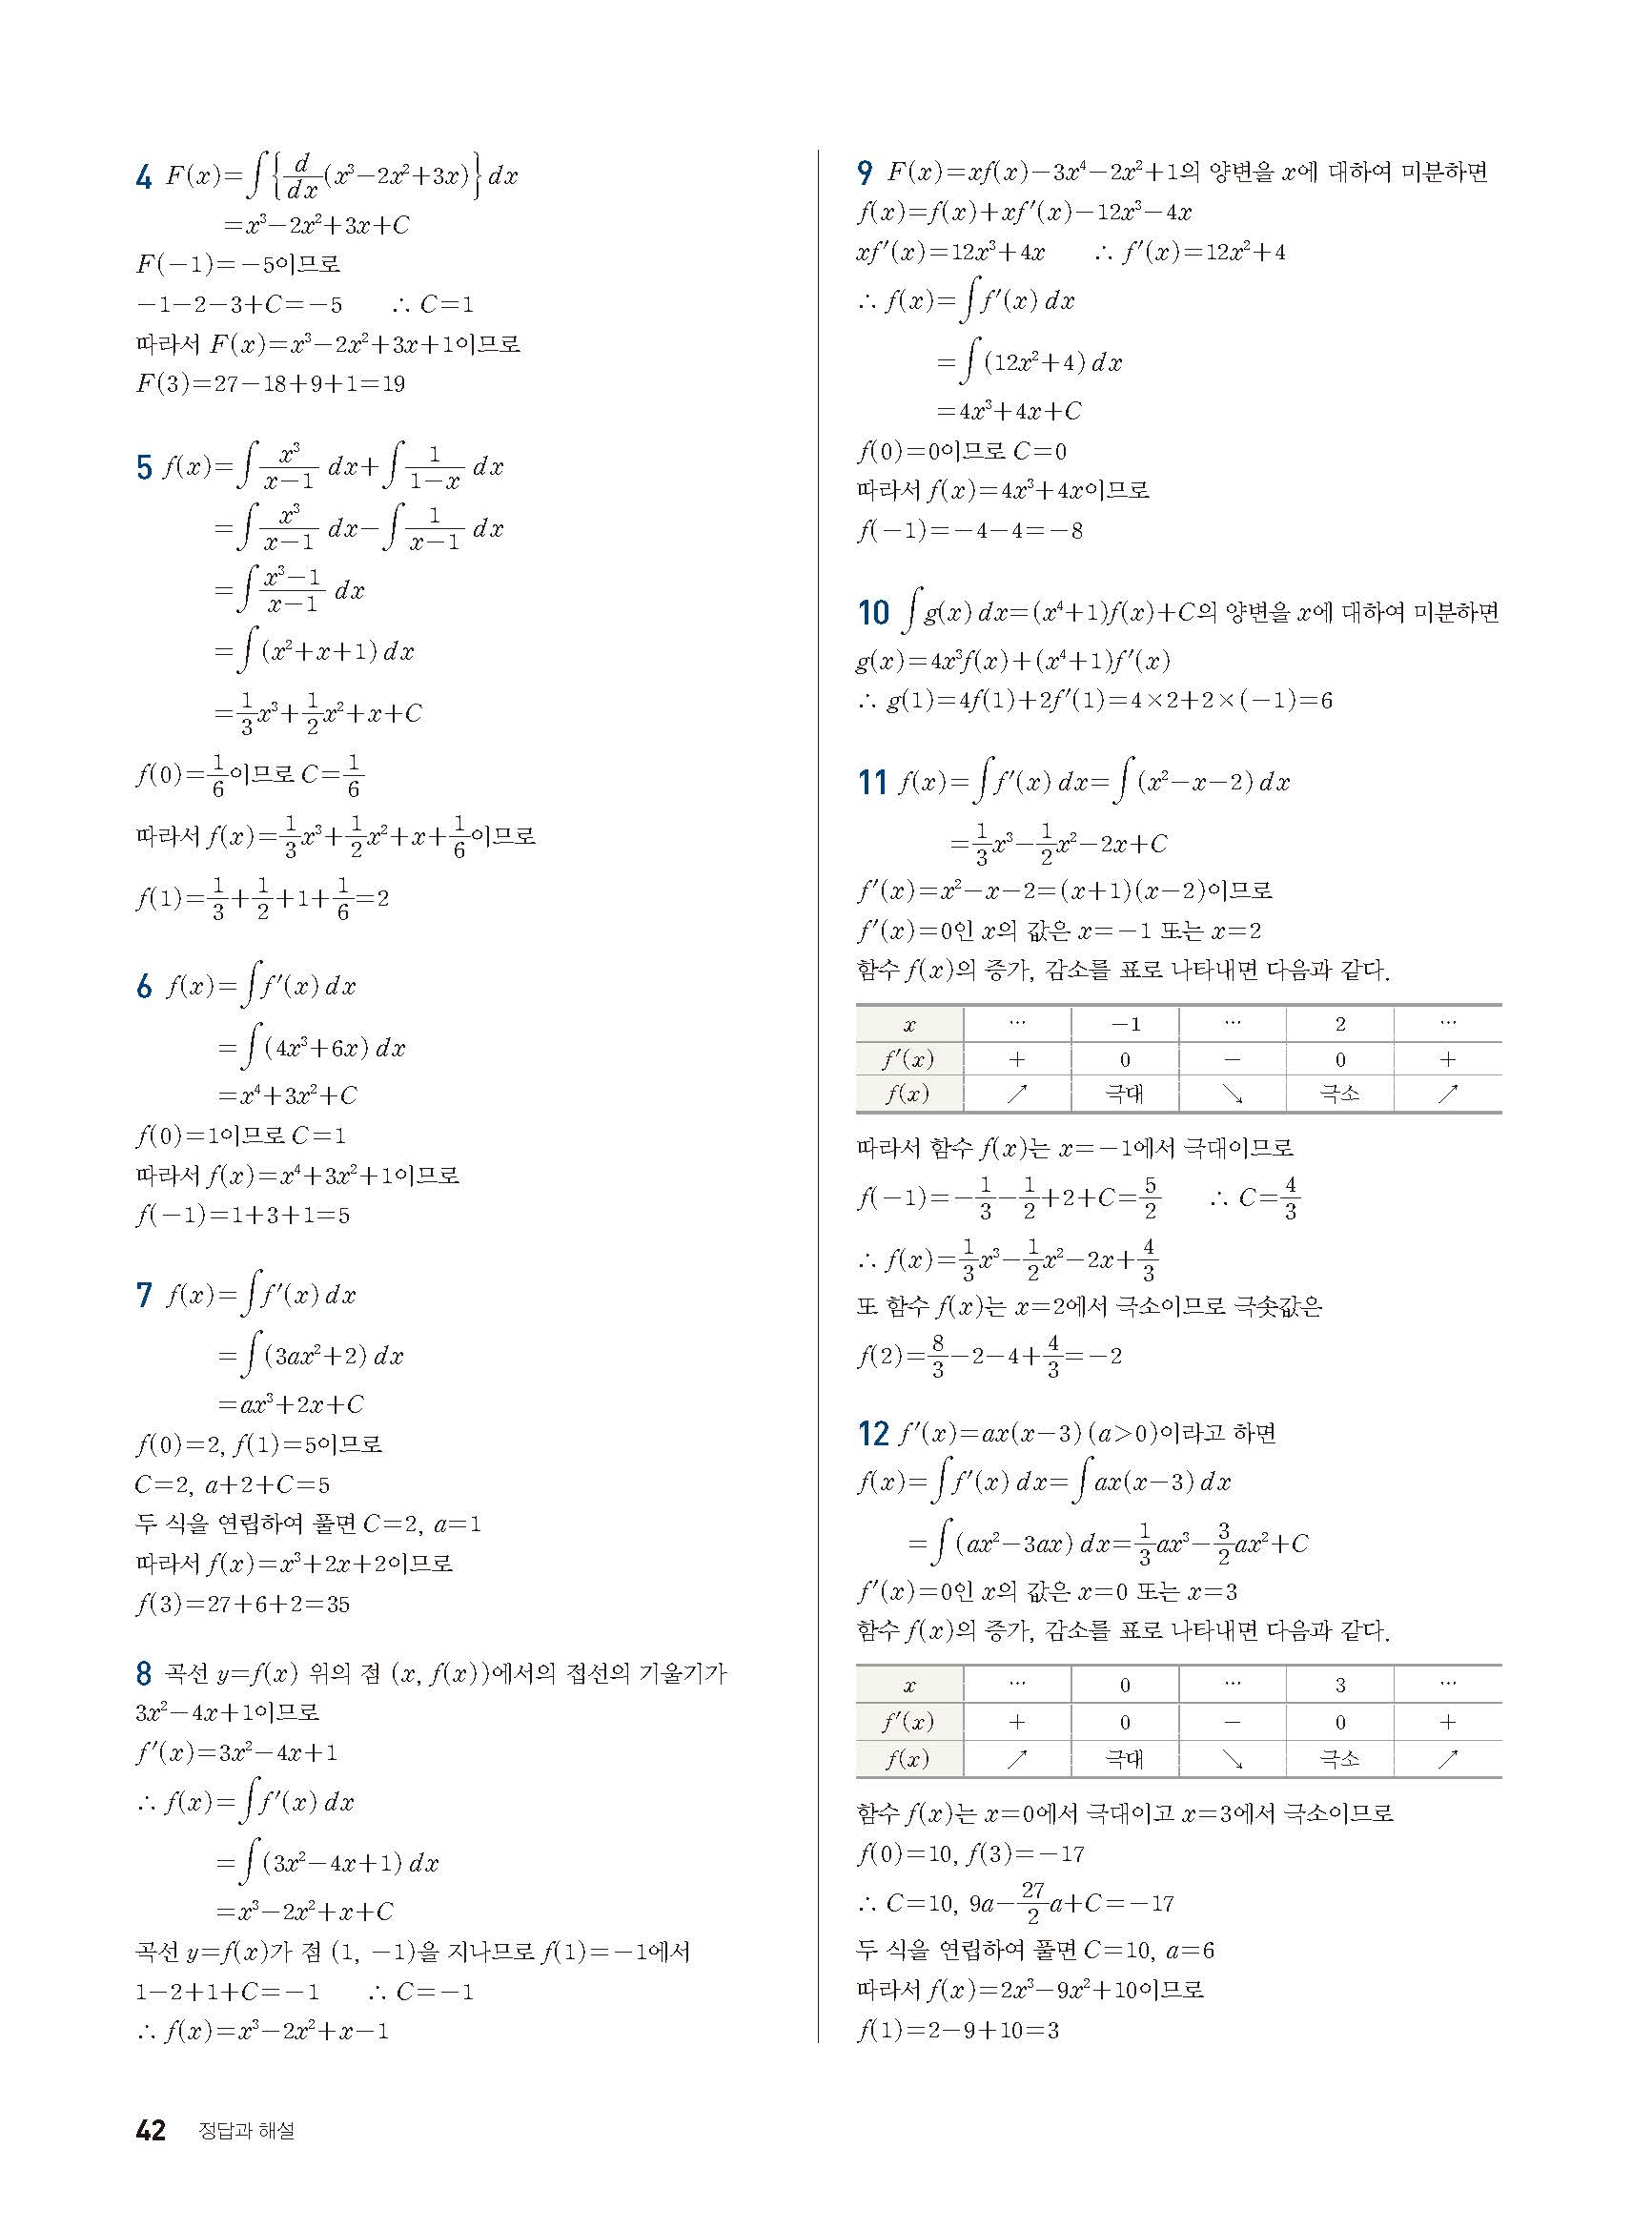 4 F(x)=∫{d/dx(x³-2x²+3x)}dx
=x³-2x²+3x+C
F(-1)=-5이므로
-1-2-3+C=-5 ∴ C=1
따라서 F(x)=x³-2x²+3x+1이므로
F(3)=27-18+9+1=19
5 f(x)=∫x³/(x-1) dx+∫1/(1-x) dx
=∫x³/(x-1) dx-∫1/(x-1) dx
=∫(x³-1)/(x-1) dx
=∫(x²+x+1)dx
=1/3x³+1/2x²+x+C
f(0)=1/6이므로 C=1/6
따라서 f(x)=1/3x³+1/2x²+x+1/6이므로
f(1)=1/3+1/2+1+1/6=2
6 f(x)=∫f'(x)dx
=∫(4x³+6x)dx
=x⁴+3x²+C
f(0)=1이므로 C=1
따라서 f(x)=x⁴+3x²+1이므로
f(-1)=1+3+1=5
7 f(x)=∫f'(x)dx
=∫(3ax²+2)dx
=ax³+2x+C
f(0)=2, f(1)=5이므로
C=2, a+2+C=5
두 식을 연립하여 풀면 C=2, a=1
따라서 f(x)=x³+2x+2이므로
f(3)=27+6+2=35
8 곡선 y=f(x) 위의 점 (x, f(x))에서의 접선의 기울기가
3x²-4x+1이므로
f'(x)=3x²-4x+1
∴ f(x)=∫f'(x)dx
=∫(3x²-4x+1)dx
=x³-2x²+x+C
곡선 y=f(x)가 점 (1, -1)을 지나므로 f(1)=-1에서
1-2+1+C=-1 ∴ C=-1
∴ f(x)=x³-2x²+x-1
9 F(x)=xf(x)-3x⁴-2x²+1의 양변을 x에 대하여 미분하면
f(x)=f(x)+xf'(x)-12x³-4x
xf'(x)=12x³+4x ∴ f'(x)=12x²+4
∴ f(x)=∫f'(x)dx
=∫(12x²+4)dx
=4x³+4x+C
f(0)=0이므로 C=0
따라서 f(x)=4x³+4x이므로
f(-1)=-4-4=-8
10 ∫g(x)dx=(x⁴+1)f(x)+C의 양변을 x에 대하여 미분하면
g(x)=4x³f(x)+(x⁴+1)f'(x)
∴ g(1)=4f(1)+2f'(1)=4×2+2×(-1)=6
11 f(x)=∫f'(x)dx=∫(x²-x-2)dx
=1/3x³-1/2x²-2x+C
f'(x)=x²-x-2=(x+1)(x-2)이므로
f'(x)=0인 x의 값은 x=-1 또는 x=2
함수 f(x)의 증가, 감소를 표로 나타내면 다음과 같다.
x … -1 … 2 …
f'(x) + 0 - 0 +
f(x) ↗ 극대 ↘ 극소 ↗
따라서 함수 f(x)는 x=-1에서 극대이므로
f(-1)=-1/3-1/2+2+C=5/2 ∴ C=4/3
∴ f(x)=1/3x³-1/2x²-2x+4/3
또 함수 f(x)는 x=2에서 극소이므로 극솟값은
f(2)=8/3-2-4+4/3=-2
12 f'(x)=ax(x-3)(a>0)이라고 하면
f(x)=∫f'(x)dx=∫ax(x-3)dx
=∫(ax²-3ax)dx=1/3ax³-3/2ax²+C
f'(x)=0인 x의 값은 x=0 또는 x=3
함수 f(x)의 증가, 감소를 표로 나타내면 다음과 같다.
x … 0 … 3 …
f'(x) + 0 - 0 +
f(x) ↗ 극대 ↘ 극소 ↗
함수 f(x)는 x=0에서 극대이고 x=3에서 극소이므로
f(0)=10, f(3)=-17
∴ C=10, 9a-27/2a+C=-17
두 식을 연립하여 풀면 C=10, a=6
따라서 f(x)=2x³-9x²+10이므로
f(1)=2-9+10=3
42 정답과 해설